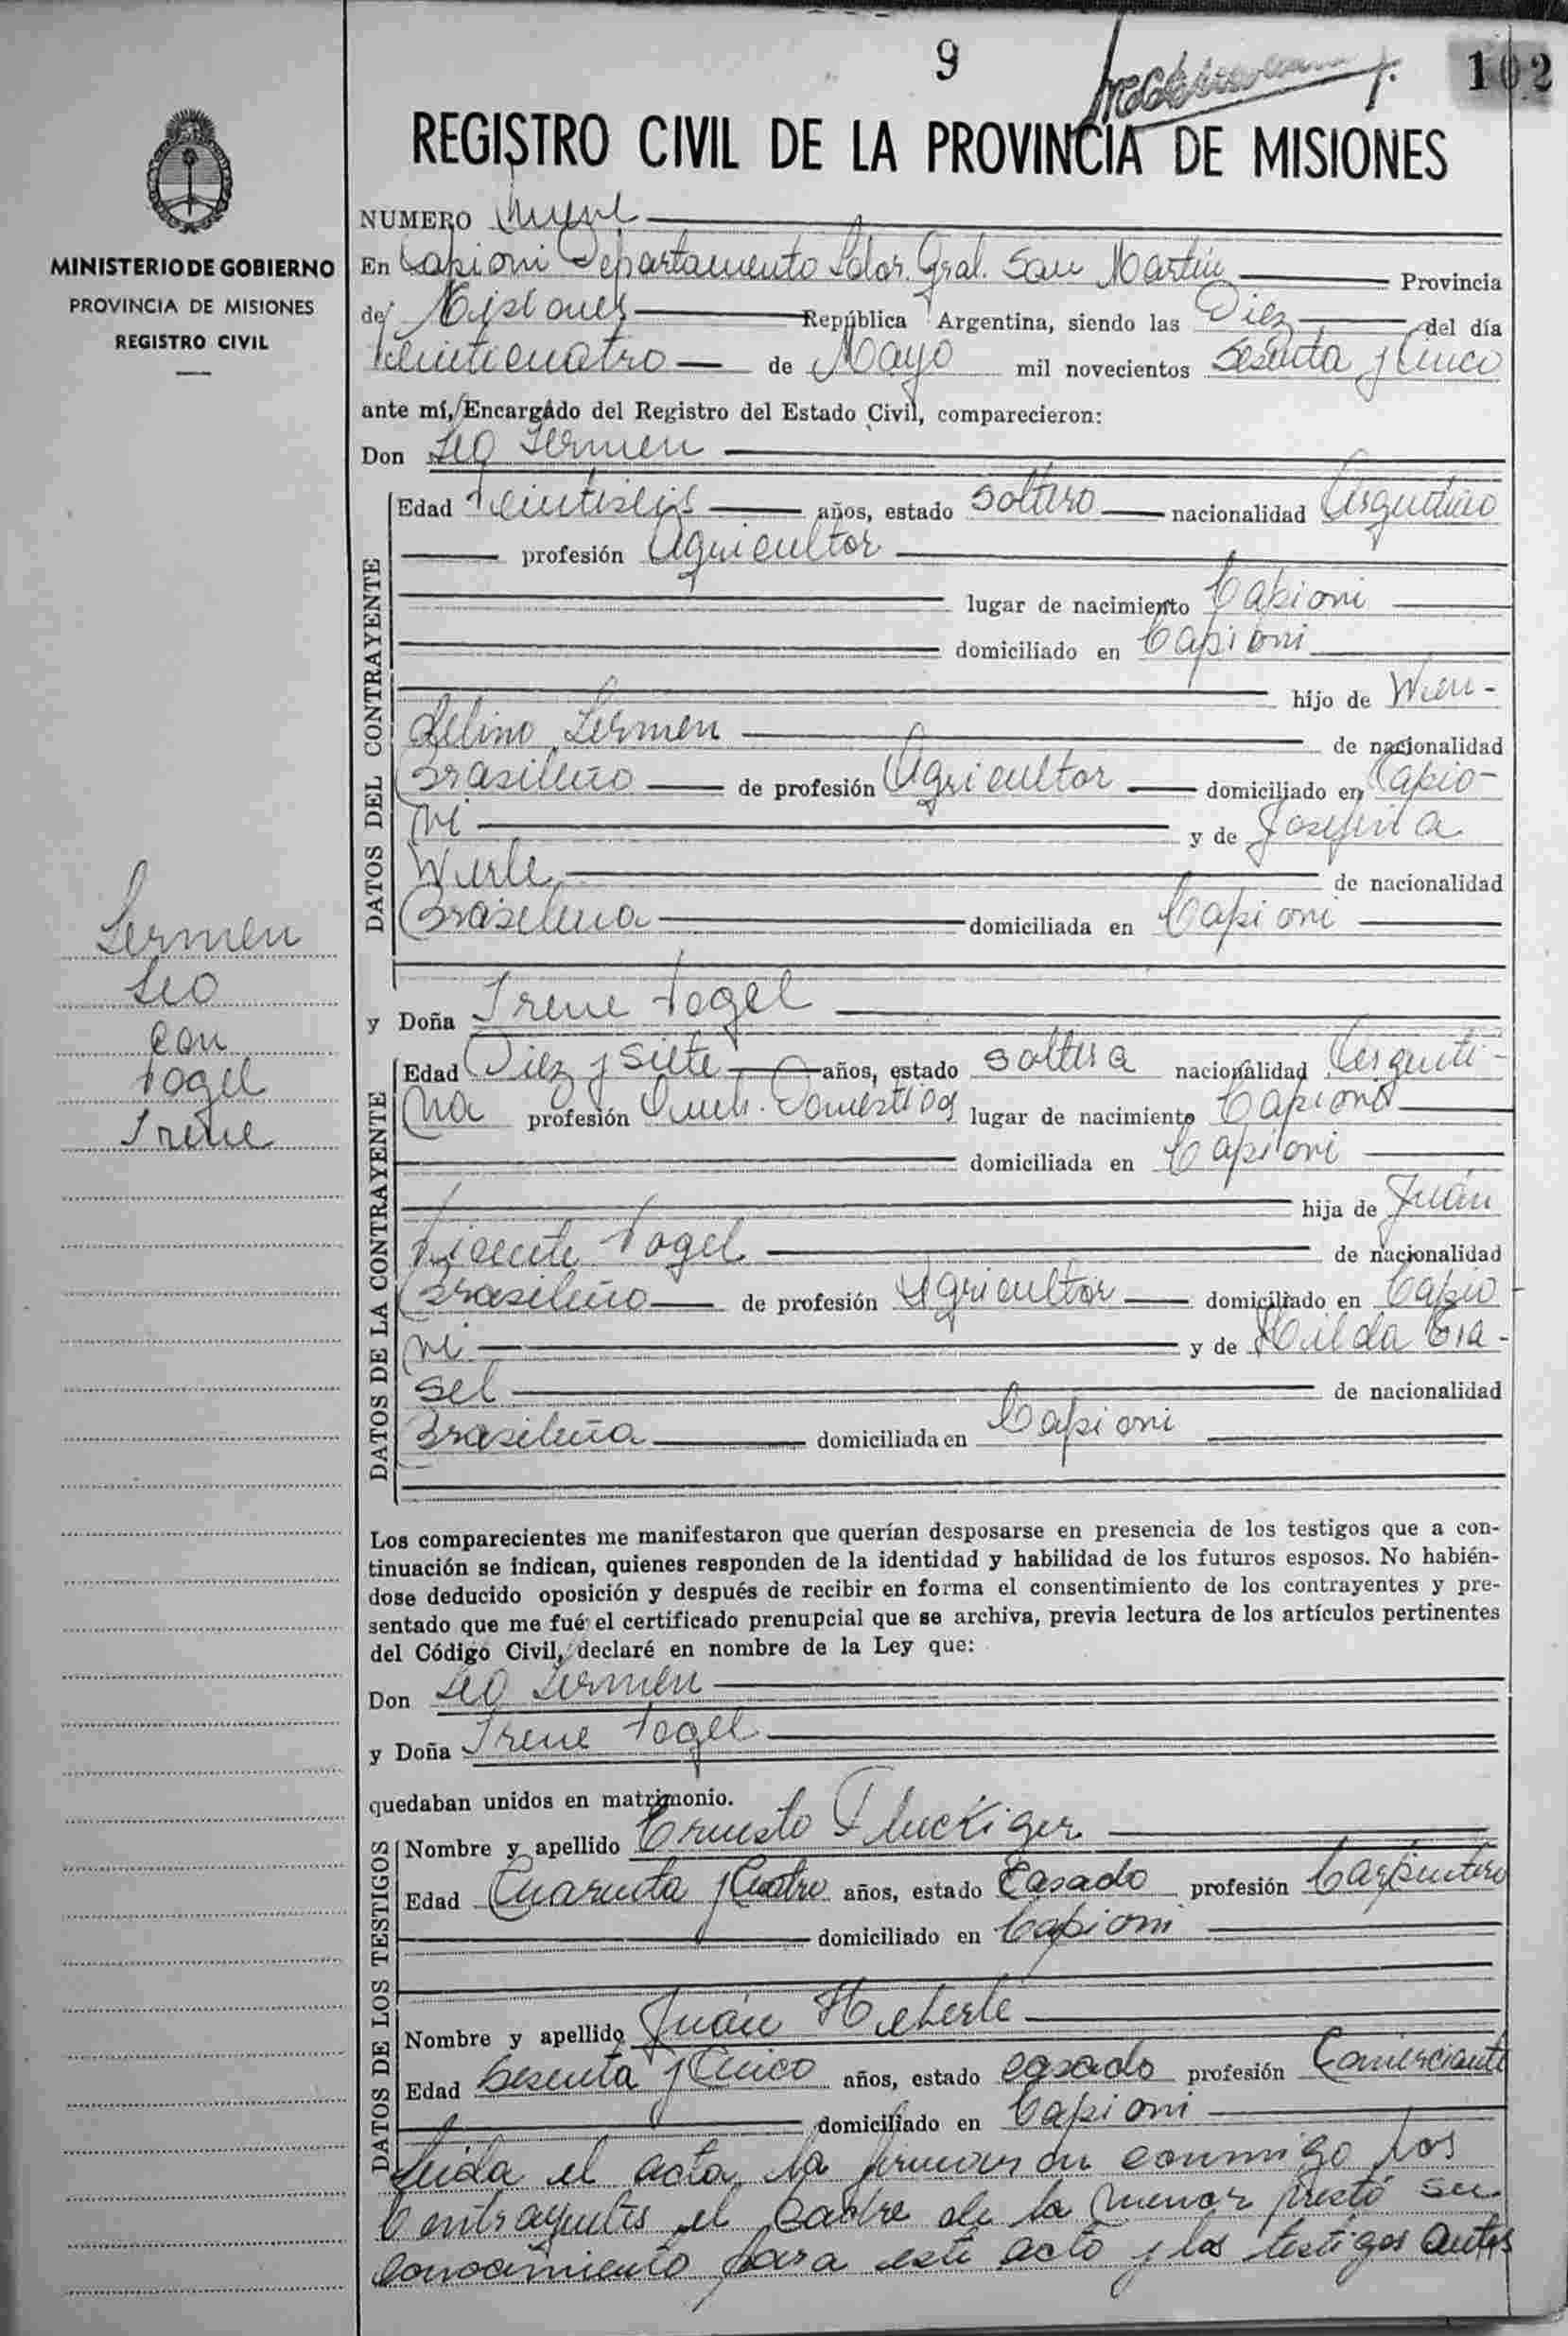 9
102
REGISTRO CIVIL DE LA PROVINCIA DE MISIONES
MINISTERIO DE GOBIERNO
PROVINCIA DE MISIONES
REGISTRO CIVIL
NUMERO Nueve
En Capioni Departamento Ldor. Gral. San Martín Provincia
de Misiones República Argentina, siendo las Diez del día
Veinticuatro de Mayo mil novecientos Sesenta y Cinco
ante mí, Encargado del Registro del Estado Civil, comparecieron:
Don Leo Lermen
DATOS DEL CONTRAYENTE
Edad Veintiseis años, estado Soltero nacionalidad Argentino
profesión Agricultor
lugar de nacimiento Capioni
domiciliado en Capioni
hijo de Wen-
delino Lermen de nacionalidad
Brasileño de profesión Agricultor domiciliado en Capio-
ni y de Josefina
Werle de nacionalidad
Brasileña domiciliada en Capioni
Lermen
Leo
con
Vogel
Irene
y Doña Irene Vogel
DATOS DE LA CONTRAYENTE
Edad Diez y Siete años, estado Soltera nacionalidad Argenti-
na profesión Domesticos lugar de nacimiento Capioni
domiciliada en Capioni
hija de Juán
Vicente Vogel de nacionalidad
Brasileño de profesión Agricultor domiciliado en Capio-
ni y de Hilda
sel de nacionalidad
Brasileña domiciliada en Capioni
Los comparecientes me manifestaron que querían desposarse en presencia de los testigos que a con-
tinuación se indican, quienes responden de la identidad y habilidad de los futuros esposos. No habién-
dose deducido oposición y después de recibir en forma el consentimiento de los contrayentes y pre-
sentado que me fué el certificado prenupcial que se archiva, previa lectura de los artículos pertinentes
del Código Civil, declaré en nombre de la Ley que:
Don Leo Lermen
y Doña Irene Vogel
quedaban unidos en matrimonio.
DATOS DE LOS TESTIGOS
Nombre y apellido Ernesto Fluckiger
Edad Cuarenta y Cuatro años, estado Casado profesión Carpintero
domiciliado en Capioni
Nombre y apellido Juán Heberle
Edad Sesenta y Cinco años, estado casado profesión Comerciante
domiciliado en Capioni
Leida el acta la firmaron conmigo los
Contrayentes el Padre de la menor prestó su
conocimiento para este acto y los testigos antes